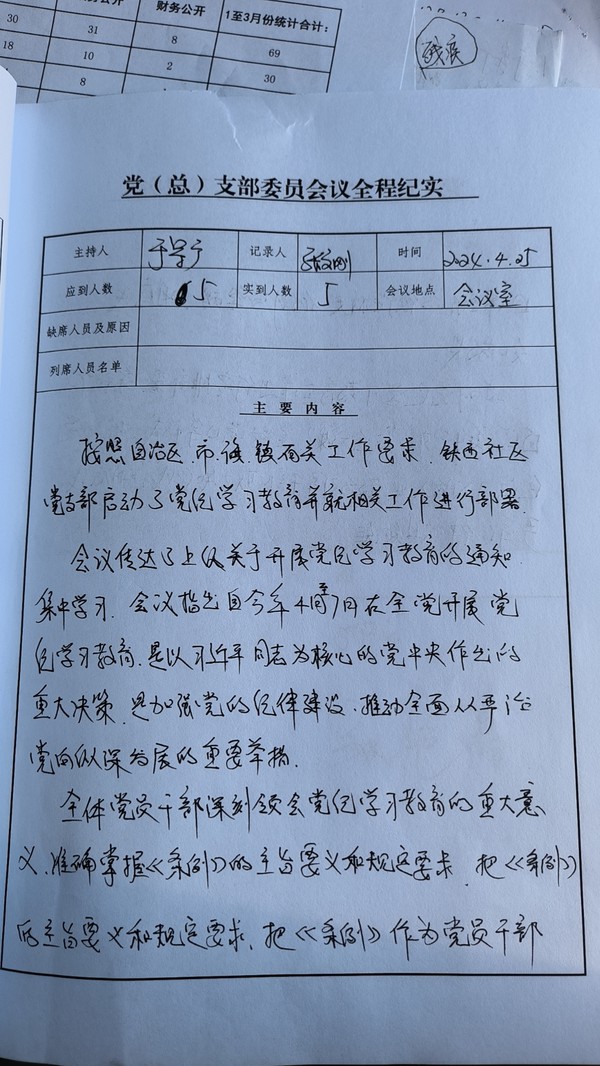 财务公开 1至3月份统计合计：
30 31 8 69
18 10 2 30
8
残疾
党（总）支部委员会议全程纪实
主持人 记录人 时间 2024.4.25
应到人数 5 实到人数 5 会议地点 会议室
缺席人员及原因
列席人员名单
主要内容
按照自治区、市、镇有关工作要求，铁西社区
党支部启动了党纪学习教育并就相关工作进行部署。
会议传达了上级关于开展党纪学习教育的通知
集中学习。会议指出自今年4月至7月在全党开展党
纪学习教育，是以习近平同志为核心的党中央作出的
重大决策，是加强党的纪律建设、推动全面从严治
党向纵深发展的重要举措。
全体党员干部深刻领会党纪学习教育的重大意
义、准确掌握《条例》的主旨要义和规定要求，把《条例》
的主旨要义和规定要求，把《条例》作为党员干部